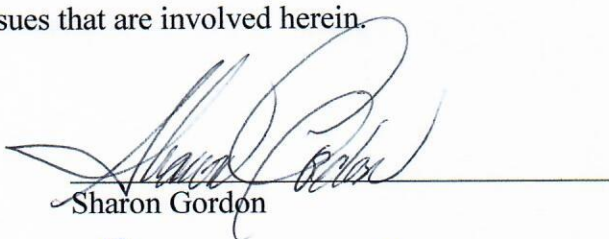 sues that are involved herein.
Sharon Gordon
Sharon Gordon